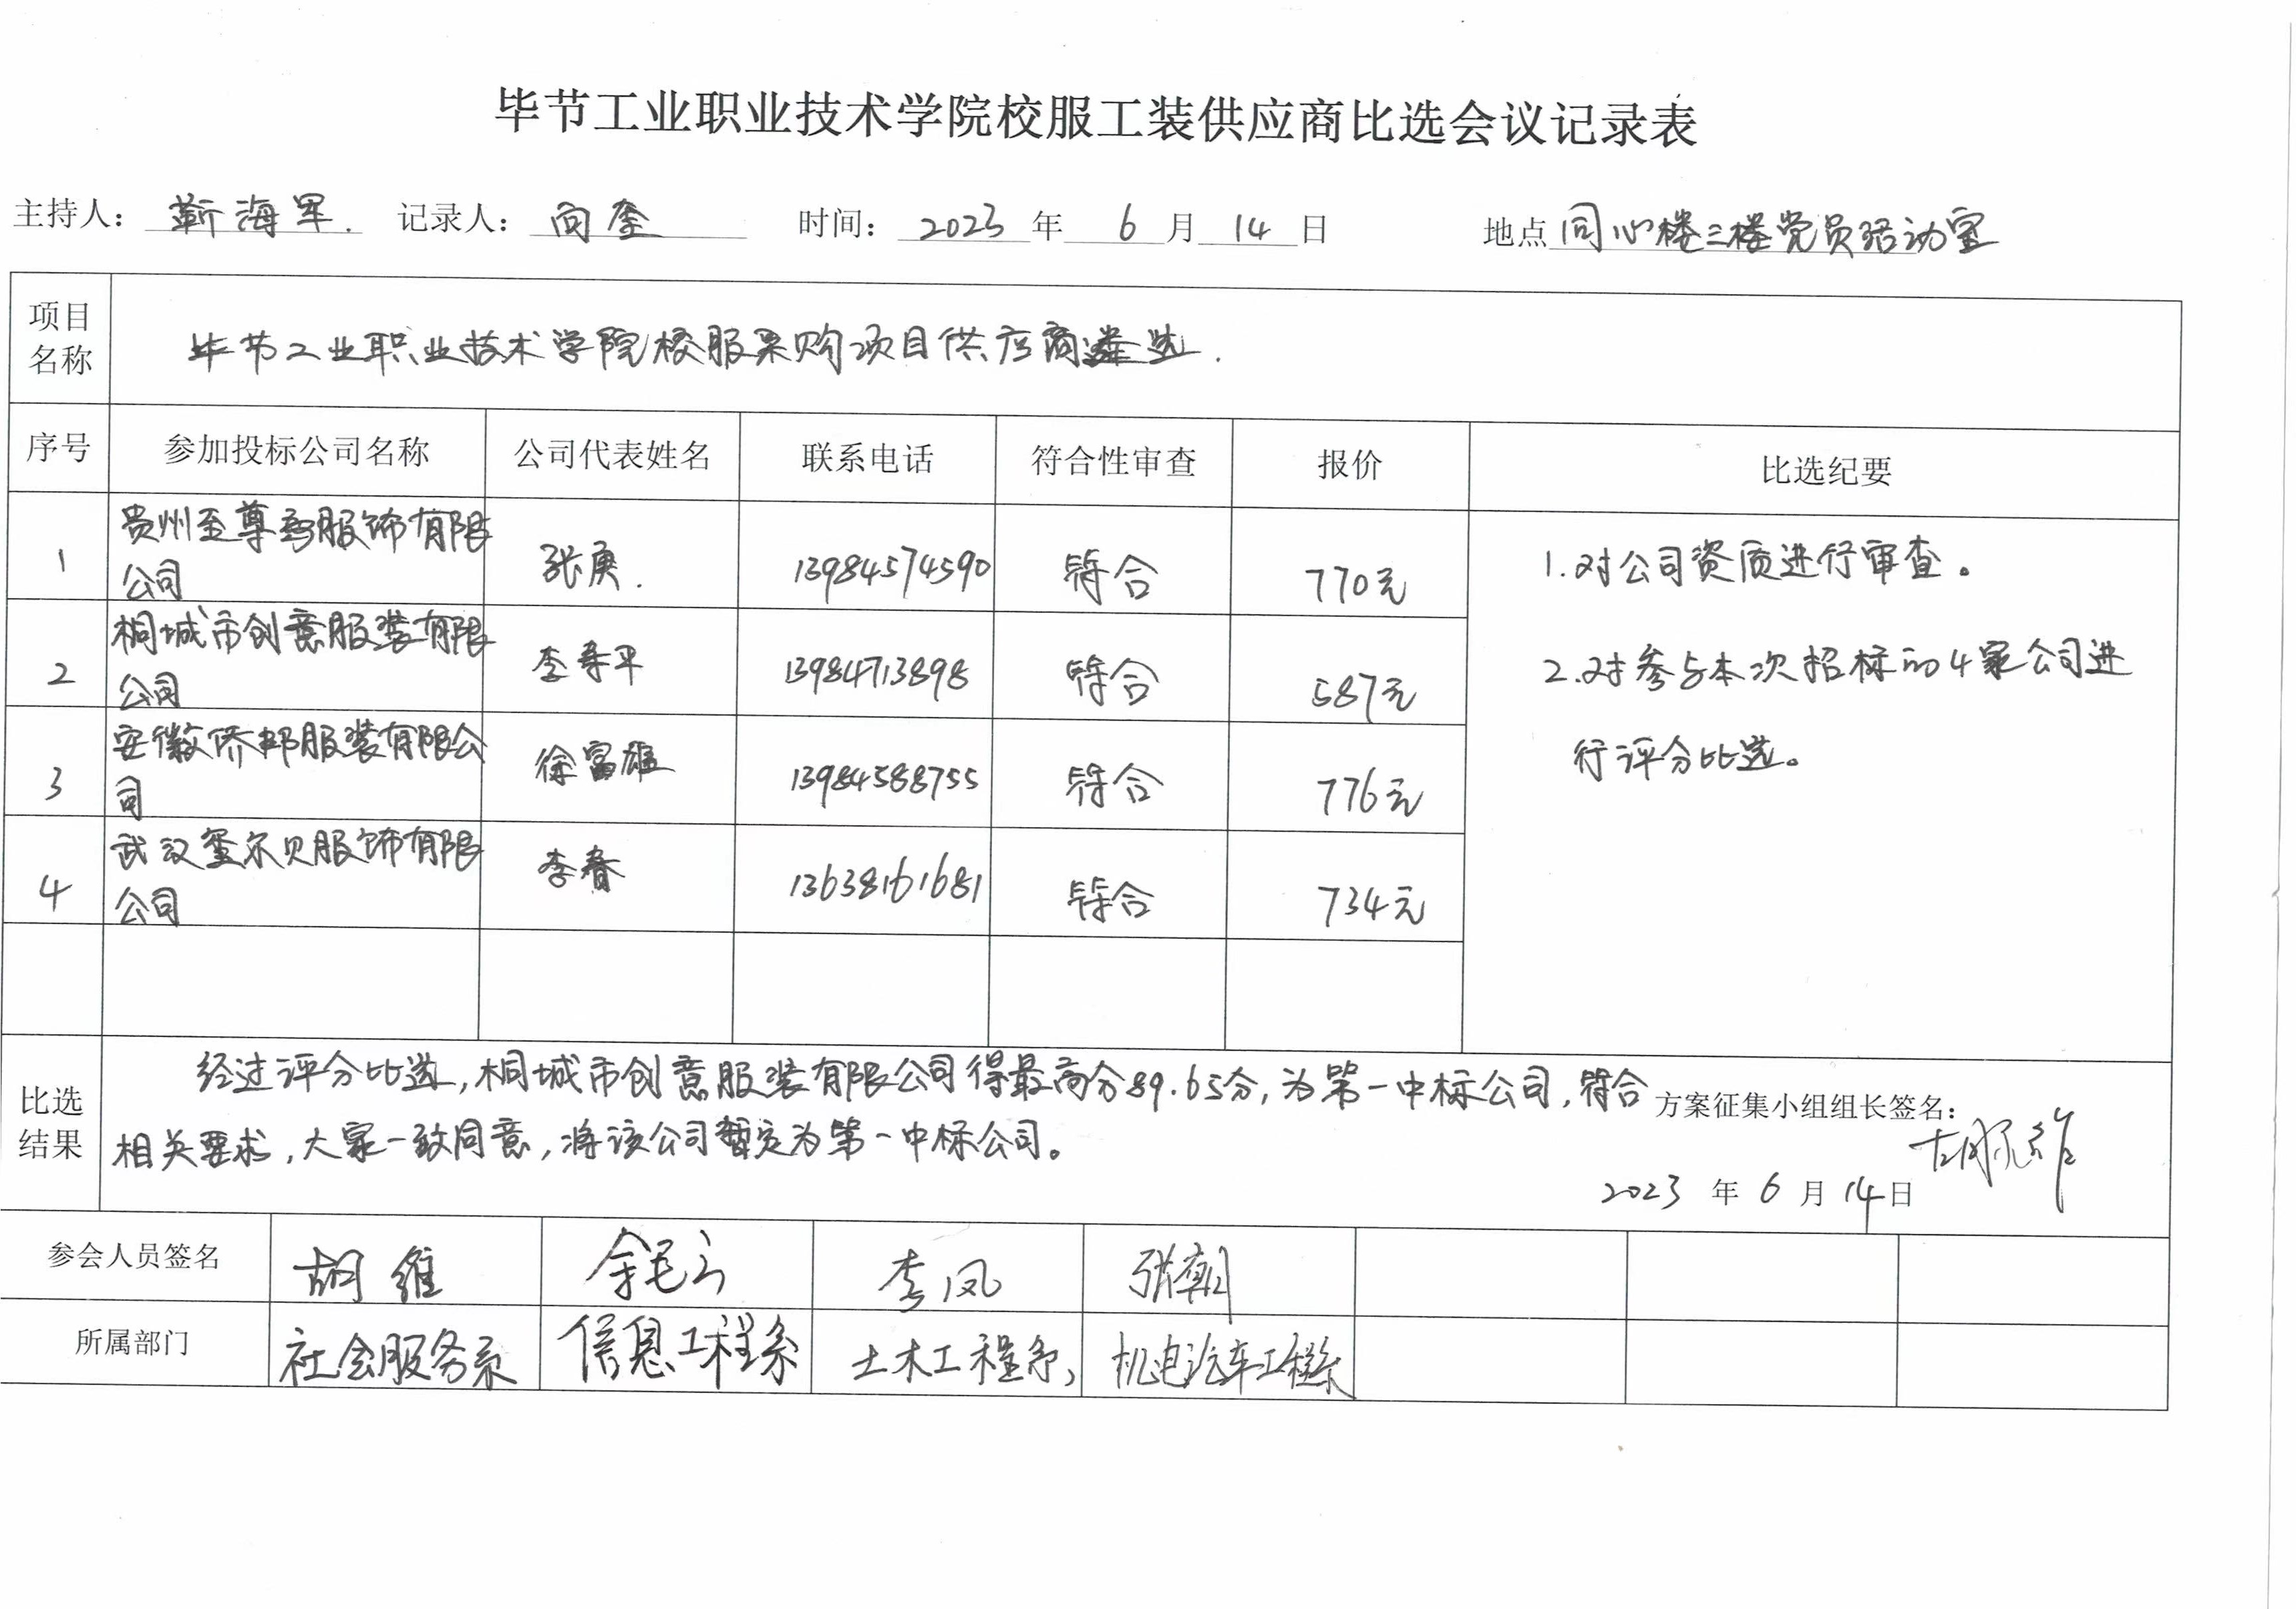 毕节工业职业技术学院校服工装供应商比选会议记录表
主持人： 靳海军. 记录人： 向奎 时间： 2023 年 6 月 14 日 地点 同心楼三楼党员活动室
项目名称 毕节工业职业技术学院校服采购项目供应商遴选.
序号 参加投标公司名称 公司代表姓名 联系电话 符合性审查 报价 比选纪要
1 贵州至尊秀服饰有限公司 张庚. 13984574590 符合 770元
2 桐城市创意服装有限公司 李寿平 13984713898 符合 587元
3 安徽侨邦服装有限公司 徐富雄 13984588755 符合 776元
4 武汉玺尔贝服饰有限公司 李春 13638161681 符合 734元
1.对公司资质进行审查。
2.对参与本次招标的4家公司进
行评分比选。
比选结果 经过评分比选,桐城市创意服装有限公司得最高分89.65分,为第一中标公司,符合
相关要求,大家一致同意,将该公司暂定为第一中标公司。
方案征集小组组长签名：
2023 年 6 月 14 日
参会人员签名 胡维 李凤 张朝
所属部门 社会服务系 信息工程系 土木工程系 机电汽车工程系